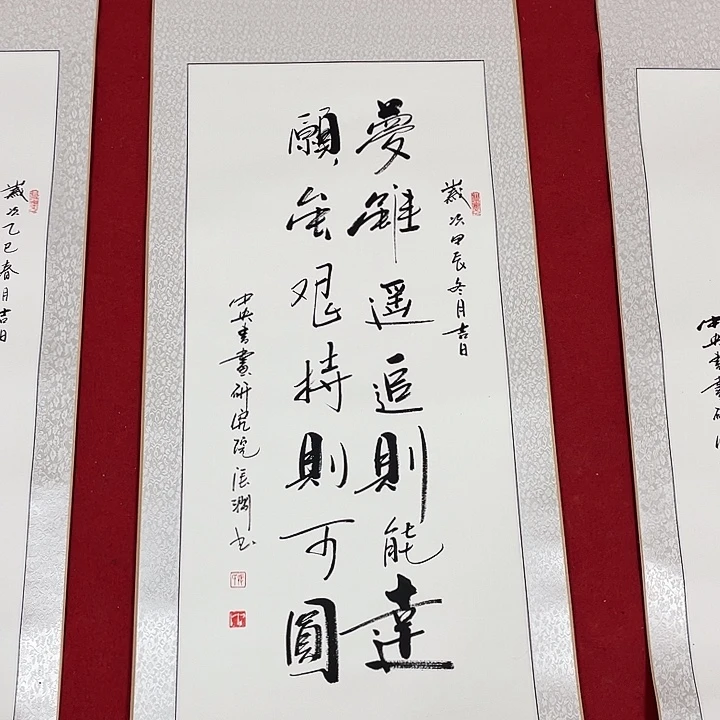 中央書畫研
歲次甲辰冬月吉日
夢雖遥追則能達
願虽艰持則可圓
中央書畫研究院張渊书
歲次乙巳春月吉日